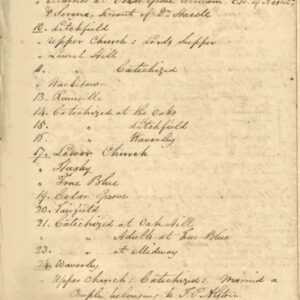 at Cedar Grove
Servant of Dr Heriot
10. Litchfield
" Upper Church: Lords Supper
" Laurel Hill
11. " Catechized
" Wachesaw
13. Rainville
14. Catechized at the Oaks
15. " Litchfield
16. " Waverly
17. Lower Church
" Hasty
" True Blue
19. Cedar Grove
20. Fairfield
21. Catechized at Oak Hill
" Adults at True Blue
23. " at Midway
24. Waverly
Upper Church: Catechized: Married a
Couple belonging to